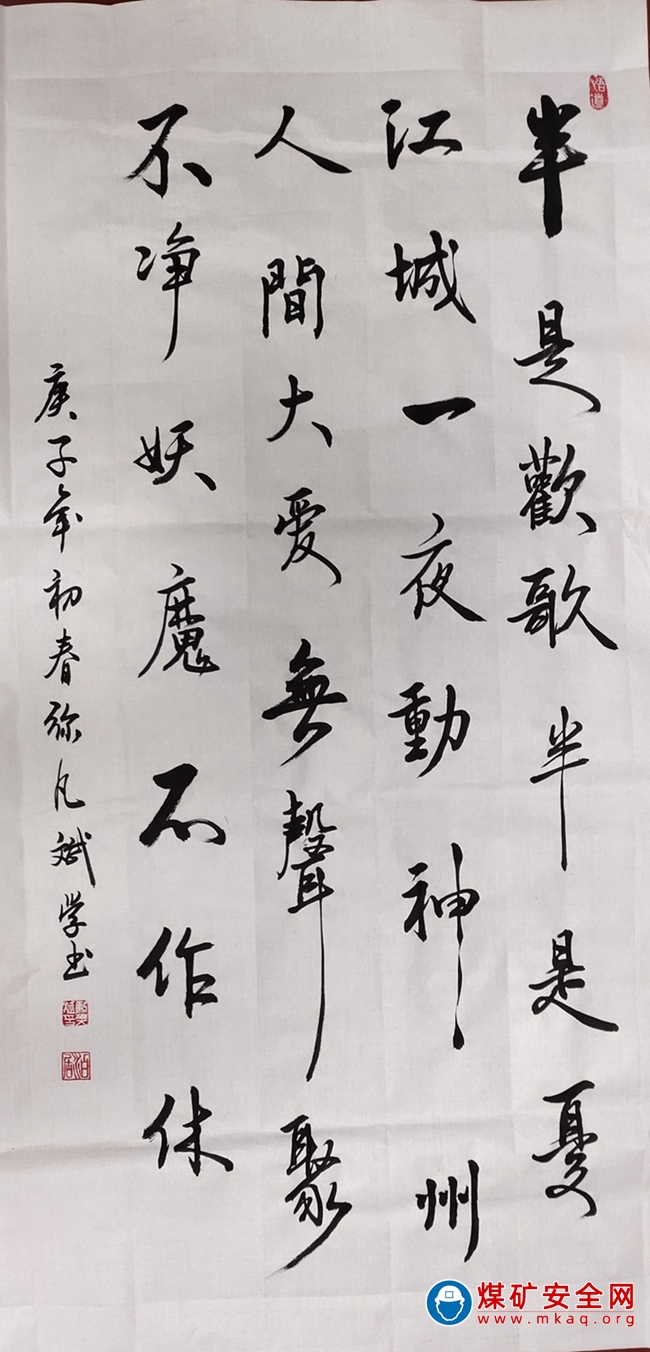 半是歡歌半是憂
江城一夜動神州
人間大愛無聲聚
不净妖魔不作休
庚子年初春弥凡斌学书
煤矿安全网
www.mkaq.org